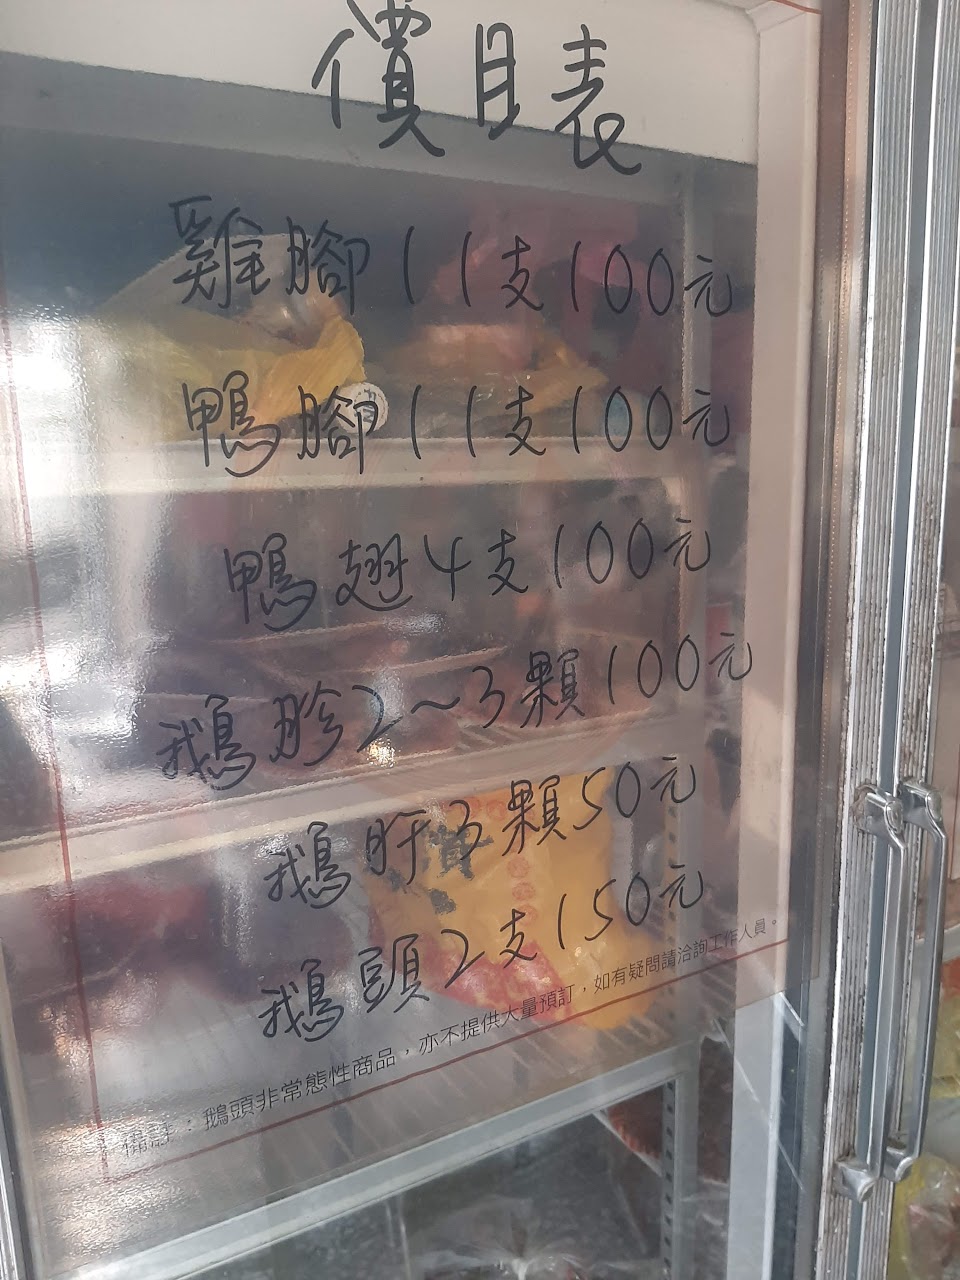 價目表
雞腳11支100元
鴨腳11支100元
鴨翅4支100元
鵝胗2~3顆100元
鵝肝3顆50元
鵝頭2支150元
備註：鵝頭非常態性商品，亦不提供大量預訂，如有疑問請洽詢工作人員。